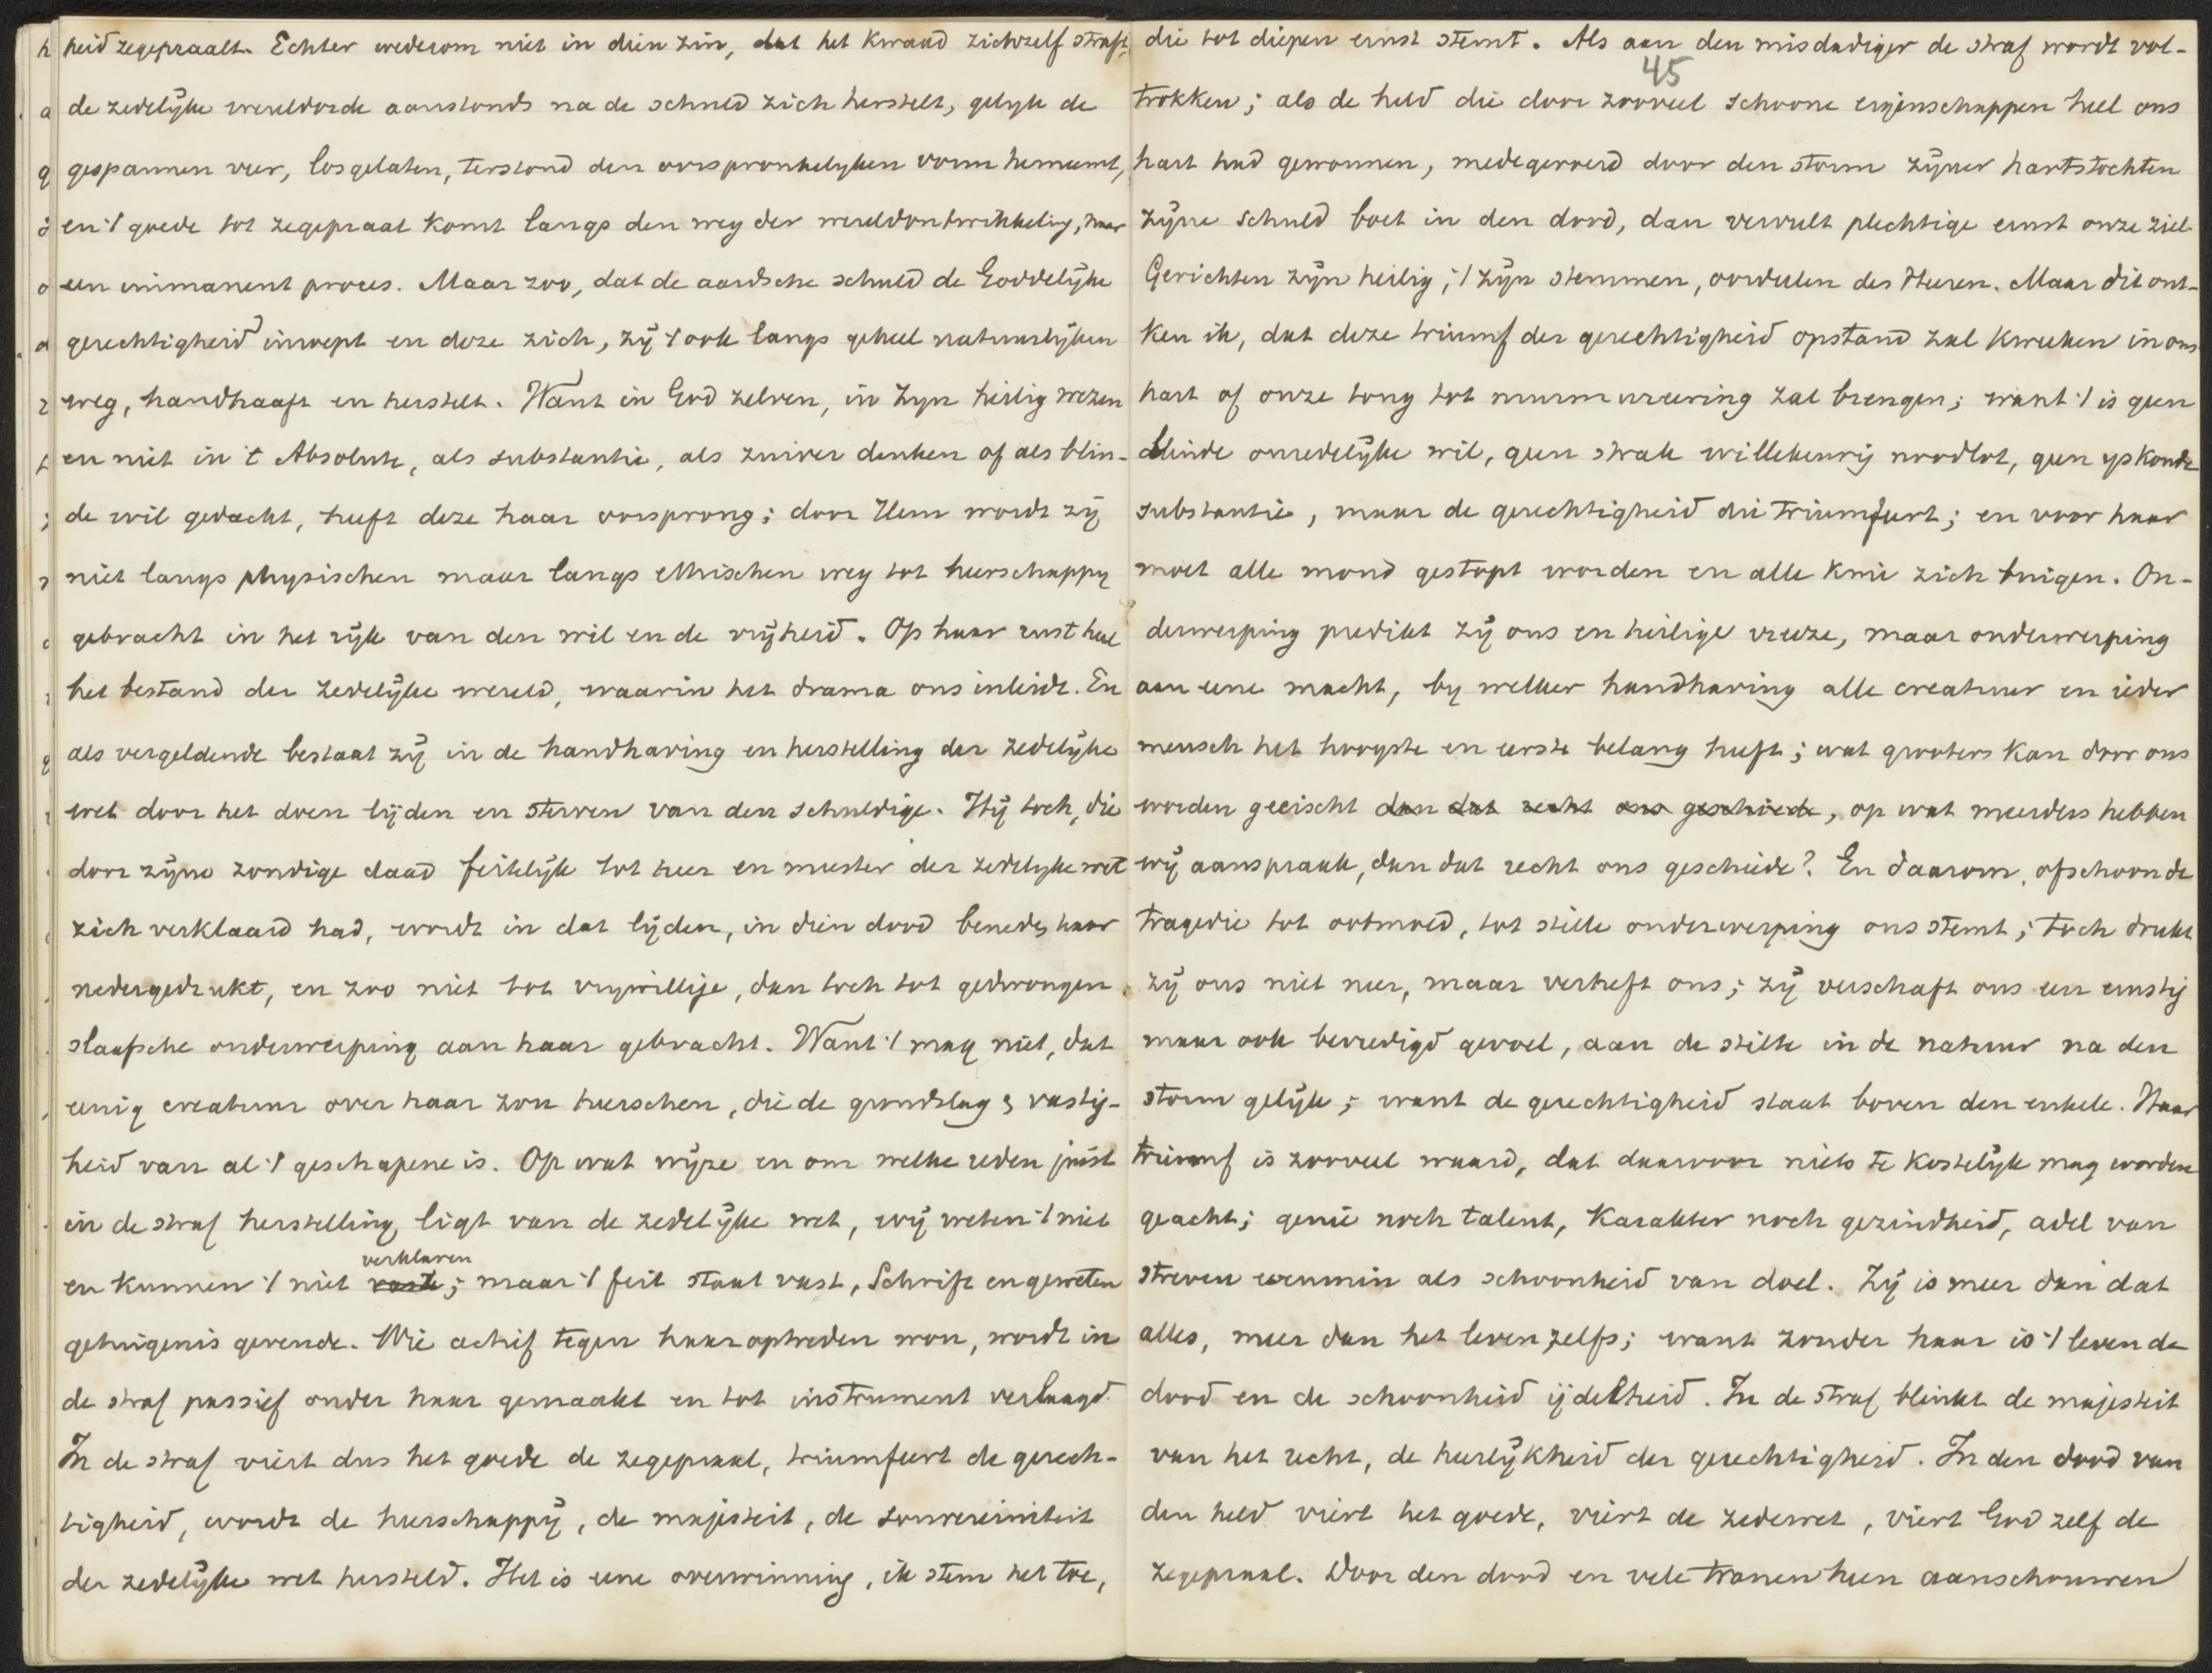 heid zegepraalt. Echter wederom niet in dien zin, dat het kwaad zichzelf straft,
de zedelijke wereldorde aanstonds na de schuld zich herstelt, gelijk de
gespannen veer, losgelaten, terstond den oorspronkelyken vorm herneemt,
en 't goede tot zegepraal komt langs den weg der wereldontwikkeling, naar
een immanent proces. Maar zoo, dat de aardsche schuld de Goddelijke
gerechtigheid inroept en deze zich, zij 't ook langs geheel natuurlijken
weg, handhaaft en herstelt. Want in God zelven, in Zyn heilig wezen
en niet in 't Absolute, als substantie, als zuiver denken of als blin-
de wil gedacht, heeft deze haar oorsprong; door Hem wordt zij
niet langs physischen maar langs ethischen weg tot heerschappy
gebracht in het rijk van den wil en de vrijheid. Op haar rust heel
het bestand der zedelijke wereld, waarin het drama ons inleidt. En
als vergeldende bestaat zij in de handhaving en herstelling der zedelijke
wet door het doen lijden en sterven van den schuldige. Hij toch, die
door zijne zondige daad feitelijk tot heer en meester der zedelyke wet
zich verklaard had, wordt in dat lijden, in dien dood beneden haar
nedergedrukt, en zoo niet tot vrywillige, dan toch tot gedwongen
slaafsche onderwerping aan haar gebracht. Want 't mag niet, dat
eenig creatuur over haar zou heerschen, die de grondslag & vastig-
heid van al 't geschapene is. Op wat wijze en om welke reden juist
in de straf herstelling ligt van de zedelijke wet, wij weten 't niet
en kunnen 't niet verklaren; maar 't feit staat vast, Schrift en geweten
getuigenis gevende. Wie actief tegen haar optreden wou, wordt in
de straf passief onder haar gemaakt en tot instrument verlaagd.
In de straf viert dus het goede de zegepraal, triumfeert de gerech-
tigheid, wordt de heerschappij, de majesteit, de souvereiniteit
der zedelijke wet hersteld. Het is eene overwinning, ik stem het toe,
45
die tot diepen ernst stemt. Als aan den misdadiger de straf wordt vol-
trokken; als de held die door zooveel schoone eigenschappen heel ons
hart had gewonnen, medegevoerd door den storm zijner hartstochten
zijne schuld boet in den dood, dan vervult plechtige ernst onze ziel.
Gerichten zijn heilig; 't zijn stemmen, oordeelen des Heeren. Maar dit ont-
ken ik, dat deze triumf der gerechtigheid opstand zal kweeken in ons
hart of onze tong tot murmureering zal brengen; want 't is geen
blinde onredelijke wil, geen strak willekeurig noodlot, geen yskoude
substantie, maar de gerechtigheid die triumfeert; en voor haar
moet alle mond gestopt worden en alle knie zich buigen. On-
derwerping predikt zij ons en heilige vreeze, maar onderwerping
aan eene macht, by welker handhaving alle creatuur en ieder
mensch het hoogste en eerste belang heeft; wat grooters kan door ons
worden geëischt dan dat recht ons geschiede, op wat meerders hebben
wij aanspraak, dan dat recht ons geschiede? En daarom, ofschoon de
tragedie tot ootmoed, tot stille onderwerping ons stemt; toch drukt
zij ons niet neer, maar verheft ons; zij verschaft ons een ernstig
maar ook bevredigd gevoel, aan de stilte in de natuur na den
storm gelijk; want de gerechtigheid staat boven den enkele. Haar
triumf is zooveel waard, dat daarvoor niets te kostelijk mag worden
geacht; genie noch talent, karakter noch gezindheid, adel van
streven evenmin als schoonheid van doel. Zij is meer dan dat
alles, meer dan het leven zelfs; want zonder haar is 't leven de
dood en de schoonheid ijdelheid. In de straf blinkt de majesteit
van het recht, de heerlijkheid der gerechtigheid. In den dood van
den held viert het goede, viert de zedewet, viert God zelf de
zegepraal. Door den dood en vele tranen heen aanschouwen